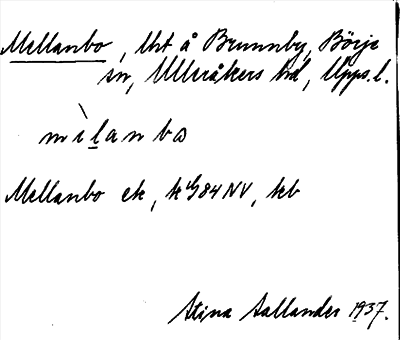 Mellanbo, lht å Brunnby, Börje
sn, Ulleråkers hd, Upps. l.
mìlanbω
Mellanbo ek, k G84NV, kb
Stina Sallander 1937.